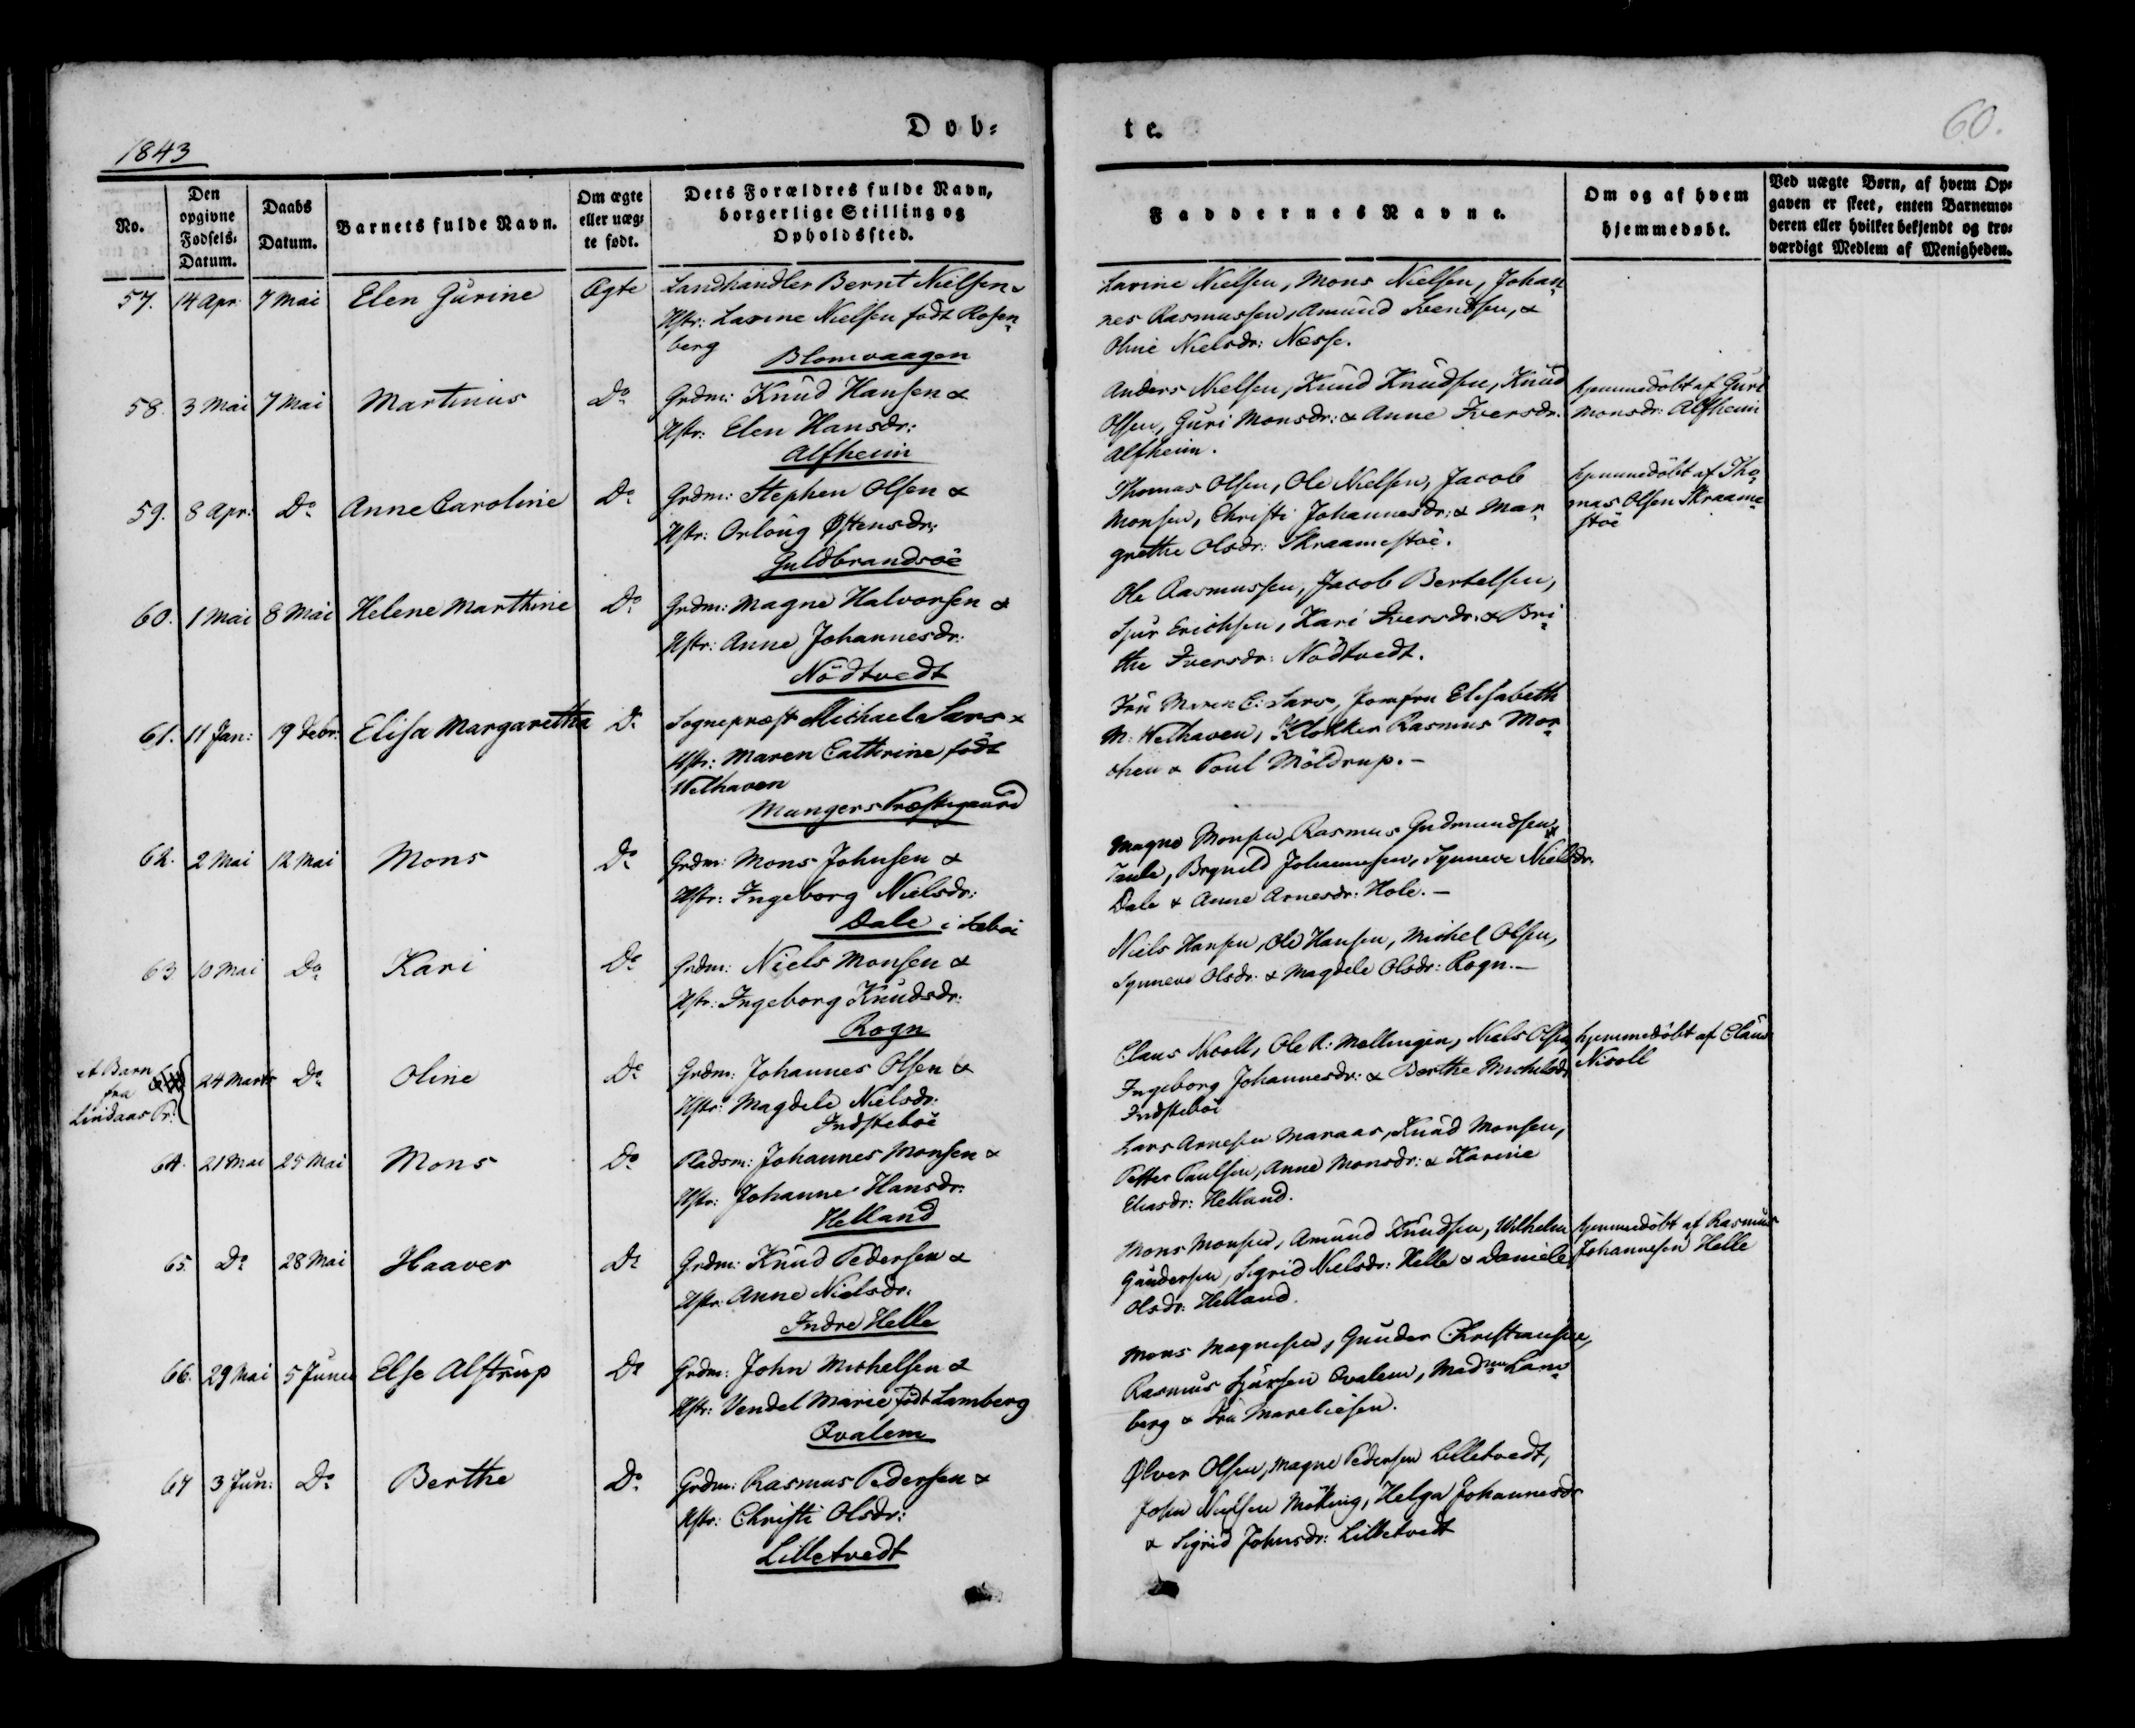 1843
Døb=
te.
60.
No.
Den
opgivne
Fødsels=
Datum.
Daabs
Datum.
Barnets fulde Navn.
Om ægte
eller uæg=
te født.
Dets Forældres fulde Navn,
borgerlige Stilling og
Opholdssted.
Faddernes Navne.
Om og af hvem
hjemmedøbt.
Ved uægte Børn, af hvem Op=
gaven er skeet, enten Barnemo=
deren eller hvilket bekjendt og tro=
værdigt Medlem af Menigheden.
57. 14 Apr 7 Mai Elen Gurine Ægte Landhandler Bernt Nielsen &
Hstr: Lavine Nielsen født Rosen=
berg
Blomvaagen
Lavine Nielsen, Mons Nielsen, Johan=
nes Rasmussen, Amund Svendsen, &
Oline Nielsdr: Næsse.
58. 3 Mai 7 Mai Martinus Do Grdm: Knud Hansen &
Hstr: Elen Hansdr:
Alfheim
Anders Nielsen, Knud Knudsen, Knud
Olsen, Guri Monsdr: & Anne Iversdr:
Alfheim.
hjemmedöbt af Guri
Monsdr: Alfheim
59. 8 Apr: Do Anne Caroline Do Grdm: Stephen Olsen &
Hstr: Orloug Østensdr:
Guldbrandsöe
Thomas Olsen, Ole Nielsen, Jacob
Monsen, Christi Johannesdr: & Mar=
grethe Olsdr: Skraamestöe.
hjemmedöbt af Tho=
mas Olsen Skraame=
stöe
60. 1 Mai 8 Mai Helene Marthine Do Grdm: Magne Halvorsen &
Hstr: Anne Johannesdr:
Nödtvedt
Ole Rasmussen, Jacob Bertelsen,
Sjur Erichsen, Kari Iversdr: & Bri=
the Iversdr: Nödtvedt.
61. 11 Jan: 19 Febr: Elisa Margaretha Do Sognepræst Michael Sars &
Hstr: Maren Cathrine födt
Welhaven
Mangers Præstegaard
Fru Maren C: Sars, Jomfru Elisabeth
M: Welhaven, Klokker Rasmus Mor=
& Poul Möldrup.-
62. 2 Mai 12 Mai Mons Do Grdm: Mons Johnsen &
Hstr: Ingeborg Nielsdr:
Dale i Sæböe
Magne Monsen, Rasmus Gudmundsen
Taule, Brynild Johannesen, Synneve Nielsdr:
Dale & Anne Arnesdr: Hole.-
63 10 Mai Do Kari Do Grdm: Niels Monsen &
Hstr: Ingeborg Knudsdr:
Rogn
Niels Hansen, Ole Hansen, Michel Olsen,
Synneve Olsdr: & Magdele Olsdr: Rogn.-
et Barn
fra
Lindaas Pr:
24 Marts Do Oline Do Grdm: Johannes Olsen &
Hstr: Magdele Nielsdr:
Indsteböe
Claus Nicoll, Ole R: Mellingen, Niels Olsen,
Ingeborg Johannesdr: & Berthe Michelsdr:
Indsteböe
hjemmedöbt af Claus
Nicoll
64. 21 Mai 25 Mai Mons Do Pladsm: Johannes Monsen &
Hstr: Johanne Hansdr:
Helland
Lars Arnesen Maraas, Knud Monsen,
Petter Paulsen, Anne Monsdr: & Karine
Eliasdr: Helland.
65. Do 28 Mai Haaver Do Grdm: Knud Pedersen &
Hstr: Anne Nielsdr:
Indre Helle
Mons Monsen, Amund Knudsen, Wilhelm
Gundersen, Sigrid Nielsdr: Helle & Daniele
Olsdr: Helland.
hjemmedöbt af Rasmus
Johannesen Helle
66. 29 Mai 5 Junii Else Alstrup Do Grdm: John Michelsen &
Hstr: Vendel Marie född Lamberg
Qvalem
Mons Magnesen, Gunder Christiansen,
Rasmus Sjursen Qvalem, Madm Lam=
berg & Fru Mareliesen.
67 3 Jun: Do Berthe Do Grdm: Rasmus Pedersen &
Hstr: Christi Olsdr:
Lilletvedt
Ølver Olsen, Magne Pedersen Lilletvedt,
John Nielsen Mölking, Helga Johannesdr
& Sigrid Johnsdr: Lilletvedt